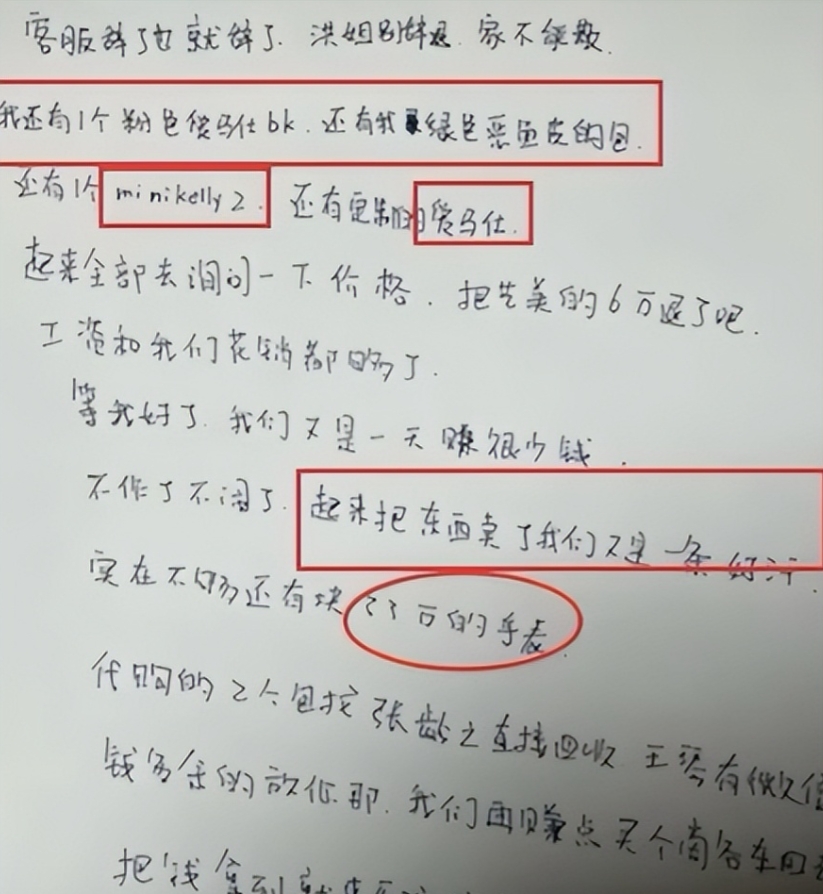 客服辞了也就辞了. 洪姐别辞退. 家不能散.
我还有1个粉色爱马仕bk. 还有我绿色恶鱼皮的包.
还有1个minikelly2. 还有定制的爱马仕.
起来全部去询问一下价格. 把艺美的6万退了吧.
工资和我们花销都够了.
等我好了. 我们又是一天赚很多钱.
不作了不闹了. 起来把东西卖了我们又是一条好汗.
实在不够还有块23万的手表.
代购的2个包找张龄之直接回收. 王琴有微信
钱多余的放你那. 我们再赚点买个商务车
把钱拿到就